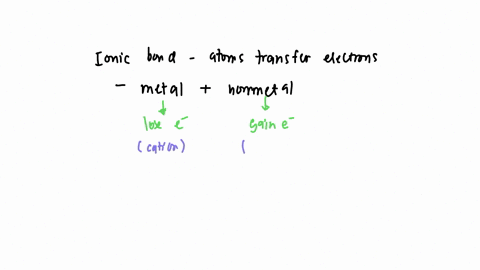 Ionic bond - atoms transfer electrons
- metal + nonmetal
lose e⁻ gain e⁻
(cation) (